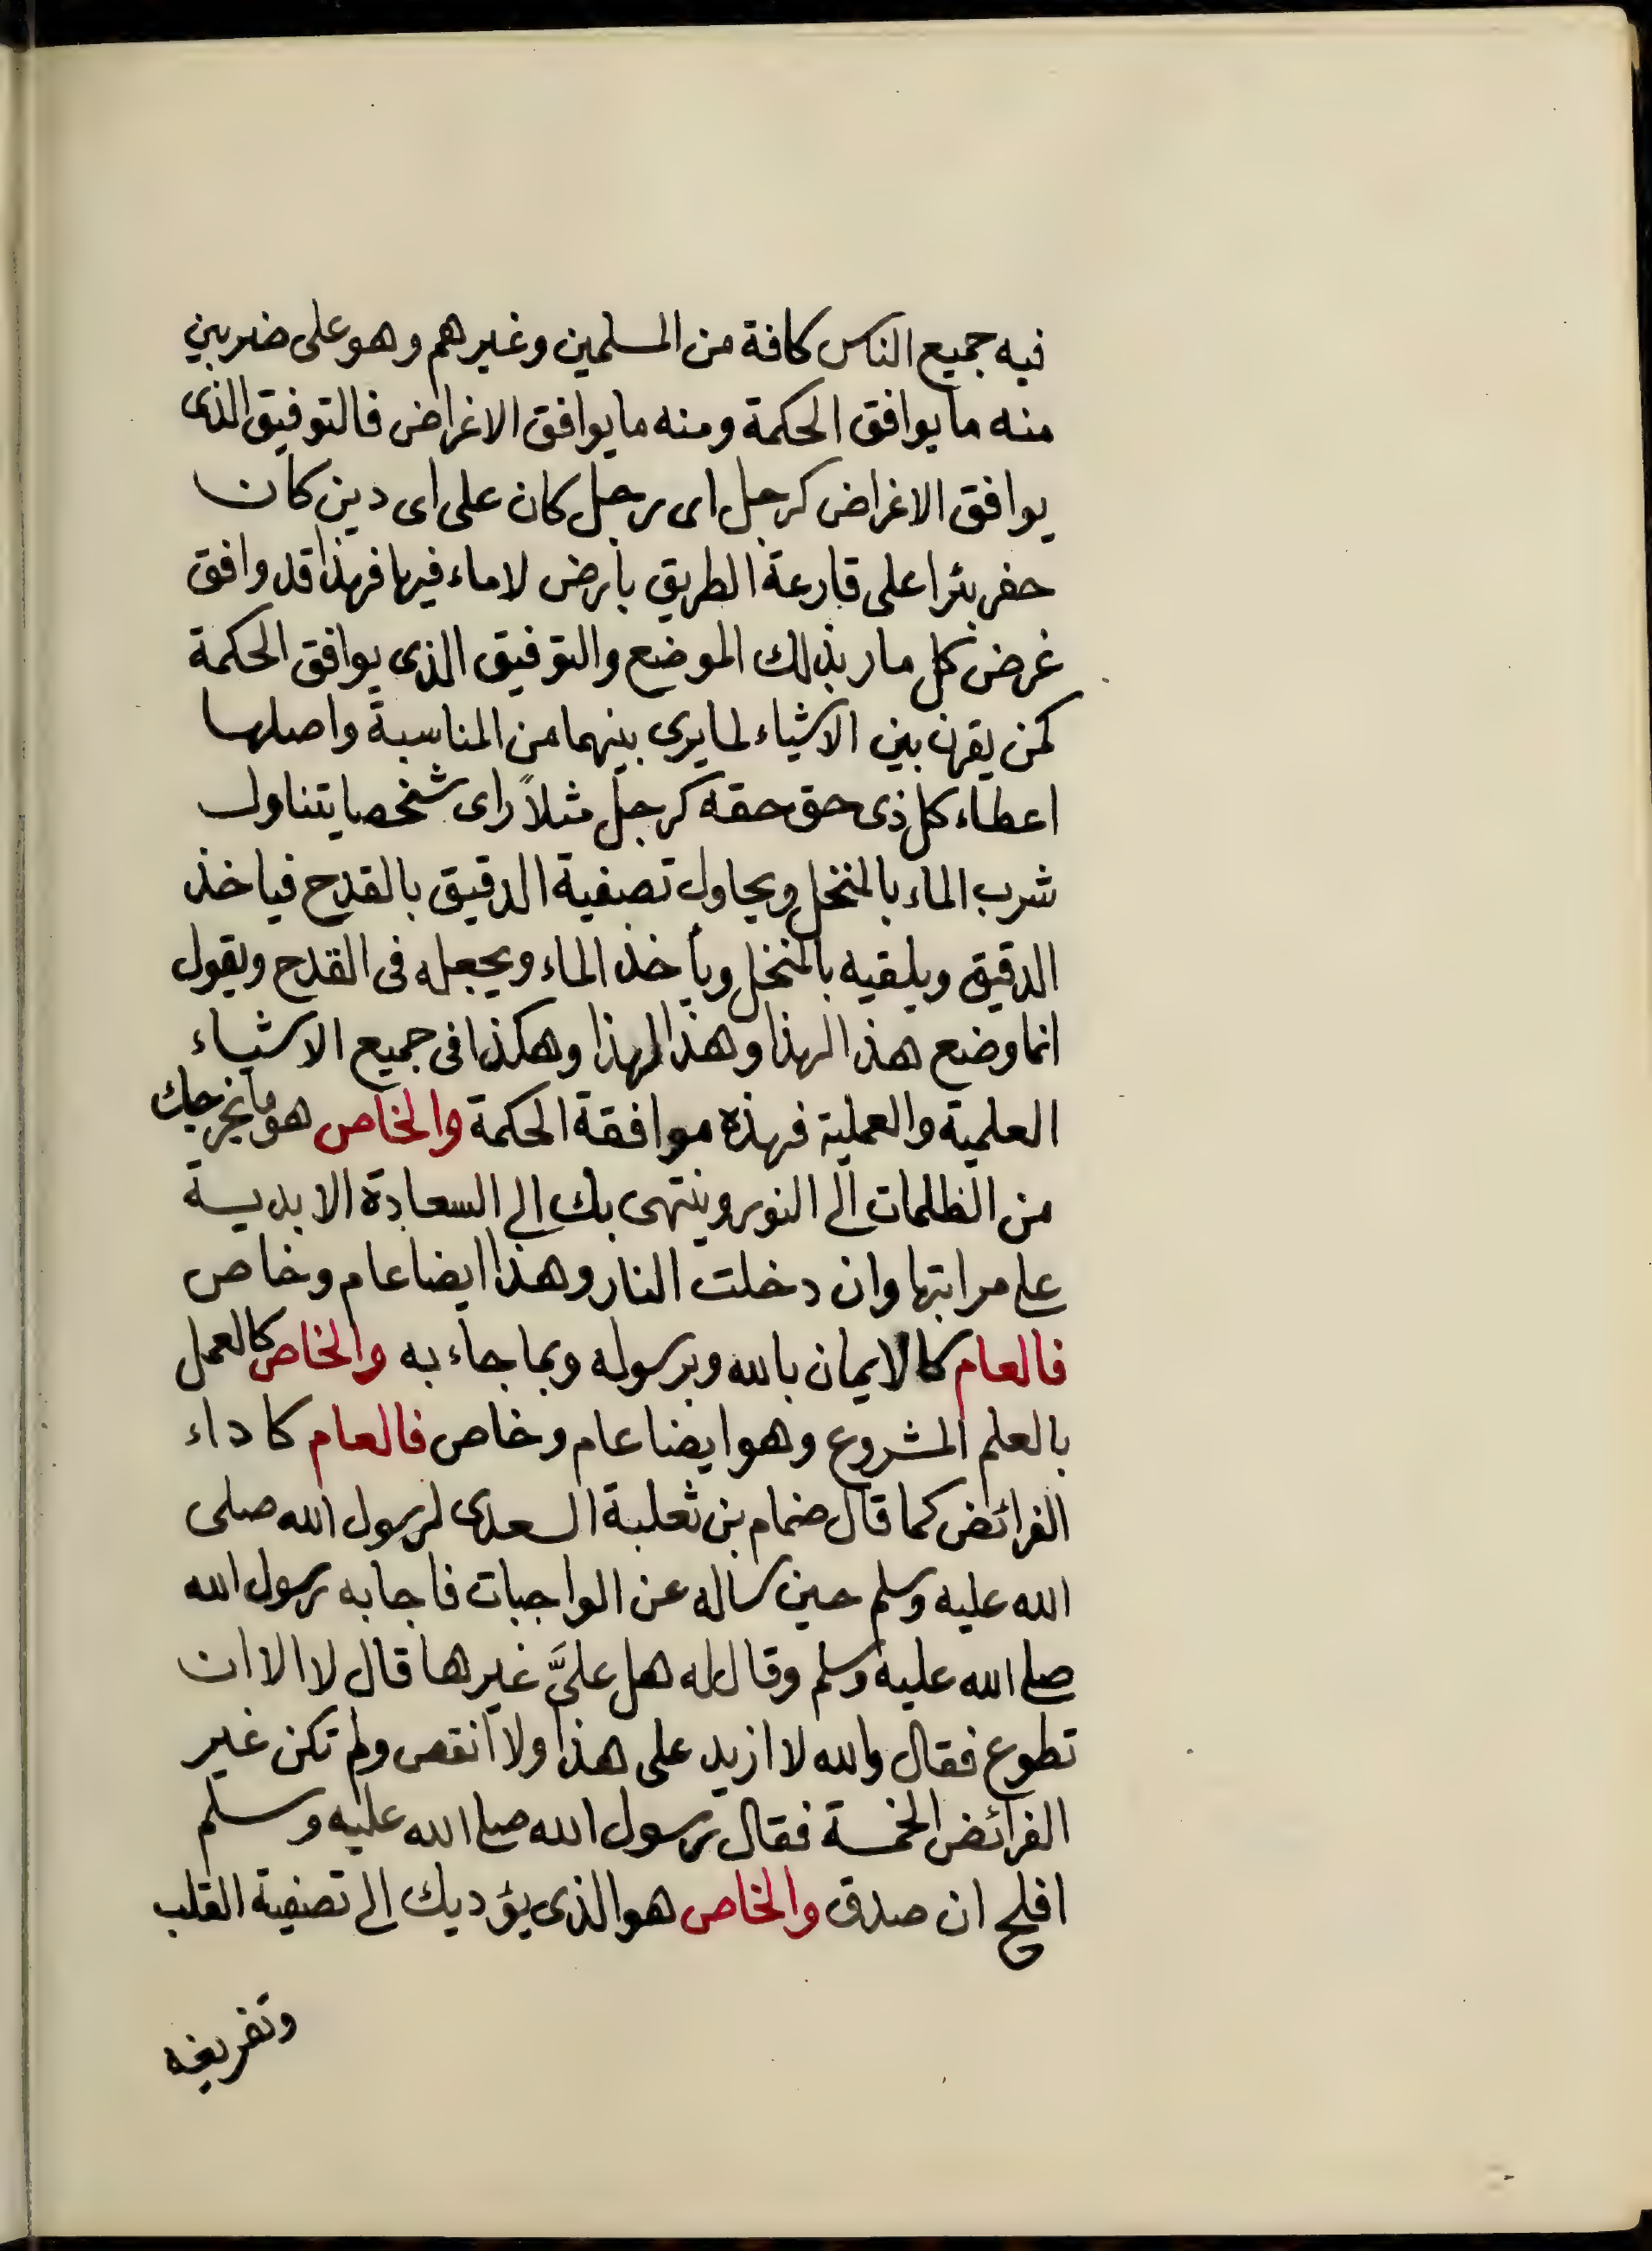 فيه جميع الناس كافة من المسلمين وغيرهم وهو على ضربين
منه ما يوافق الحكمة ومنه ما يوافق الاغراض فالتوفيق الذى
يوافق الاغراض كرجل اى رجل كان على اى دين كان
حفر بئرا على قارعة الطريق بارض لا ماء فيها فهذا قد وافق
غرض كل مار بذلك الموضع والتوفيق الذى يوافق الحكمة
كمن يقرن بين الاشياء لما يرى بينهما من المناسبة واصلها
اعطاء كل ذى حق حقه كرجل مثلاً راى شخصا يتناول
شرب الماء بالمنخل ويحاول تصفية الدقيق بالقدح فياخذ
الدقيق ويلقيه بالمنخل ويأخذ الماء ويجعله فى القدح ويقول
انما وضع هذا لهذا وهذا لهذا وهكذا فى جميع الاشياء
العلمية والعملية فهذه موافقة الحكمة والخاص هو ما يخرجك
من الظلمات الى النور وينتهى بك الى السعادة الابدية
على مراتبها وان دخلت النار وهذا ايضا عام وخاص
فالعام كالايمان بالله وبرسوله وبما جاء به والخاص كالعمل
بالعلم المشروع وهو ايضا عام وخاص فالعام كاداء
الفرائض كما قال ضمام بن ثعلبة السعدى لرسول الله صلى
الله عليه وسلم حين ساله عن الواجبات فاجابه رسول الله
صلى الله عليه وسلم وقال له هل علىَّ غيرها قال لا الا ان
تطوع فقال والله لا ازيد على هذا ولا انقص ولم تكن غير
الفرائض الخمسة فقال رسول الله صلى الله عليه وسلم
افلح ان صدق والخاص هو الذى يؤديك الى تصفية القلب
وتفريغه